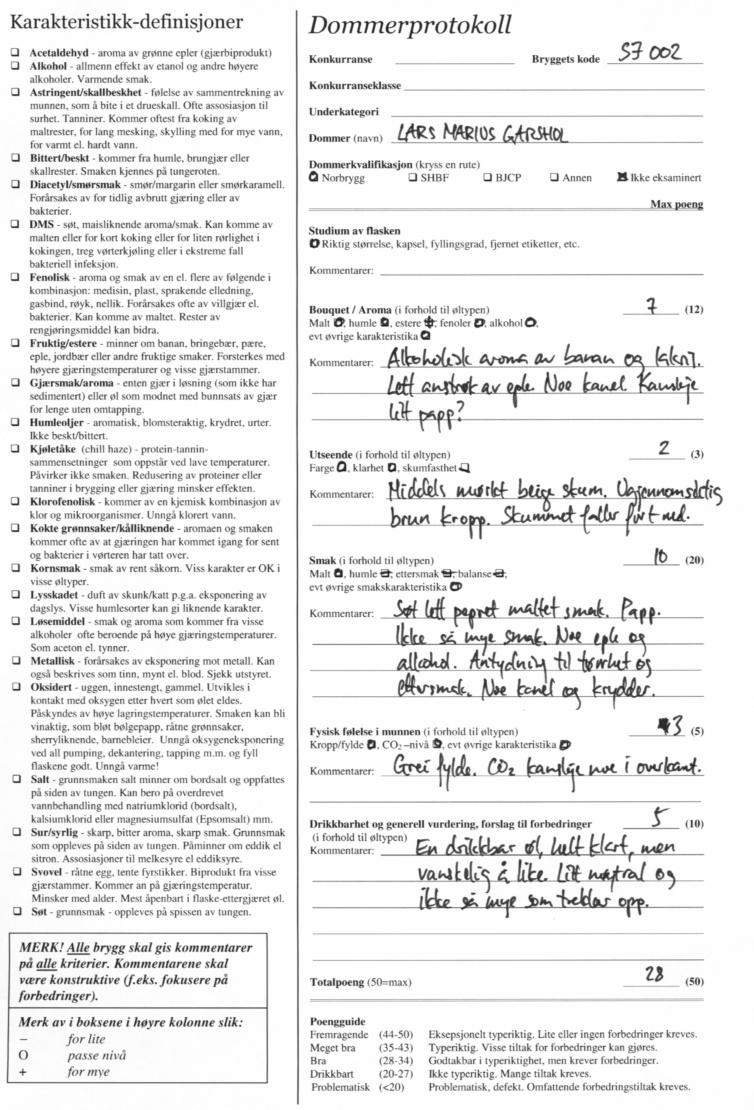 Karakteristikk-definisjoner
Acetaldehyd - aroma av grønne epler (gjærbiprodukt)
Alkohol - allmenn effekt av etanol og andre høyere
alkoholer. Varmende smak.
Astringent/skallbeskhet - følelse av sammentrekning av
munnen, som å bite i et drueskall. Ofte assosiasjon til
surhet. Tanniner. Kommer oftest fra koking av
maltrester, for lang mesking, skylling med for mye vann,
for varmt el. hardt vann.
Bittert/beskt - kommer fra humle, brungjær eller
skallrester. Smaken kjennes på tungeroten.
Diacetyl/smørsmak - smør/margarin eller smørkaramell.
Forårsakes av for tidlig avbrutt gjæring eller av
bakterier.
DMS - søt, maisliknende aroma/smak. Kan komme av
malten eller for kort koking eller for liten rørlighet i
kokingen, treg vørterkjøling eller i ekstreme fall
bakteriell infeksjon.
Fenolisk - aroma og smak av en el. flere av følgende i
kombinasjon: medisin, plast, sprakende elledning,
gasbind, røyk, nellik. Forårsakes ofte av villgjær el.
bakterier. Kan komme av maltet. Rester av
rengjøringsmiddel kan bidra.
Fruktig/estere - minner om banan, bringebær, pære,
eple, jordbær eller andre fruktige smaker. Forsterkes med
høyere gjæringstemperaturer og visse gjærstammer.
Gjærsmak/aroma - enten gjær i løsning (som ikke har
sedimentert) eller øl som modnet med bunnsats av gjær
for lenge uten omtapping.
Humleoljer - aromatisk, blomsteraktig, krydret, urter.
Ikke beskt/bittert.
Kjøletåke (chill haze) - protein-tannin-
sammensetninger som oppstår ved lave temperaturer.
Påvirker ikke smaken. Redusering av proteiner eller
tanniner i brygging eller gjæring minsker effekten.
Klorofenolisk - kommer av en kjemisk kombinasjon av
klor og mikroorganismer. Unngå klorert vann.
Kokte grønnsaker/kålliknende - aromaen og smaken
kommer ofte av at gjæringen har kommet igang for sent
og bakterier i vørteren har tatt over.
Kornsmak - smak av rent såkorn. Viss karakter er OK i
visse øltyper.
Lysskadet - duft av skunk/katt p.g.a. eksponering av
dagslys. Visse humlesorter kan gi liknende karakter.
Løsemiddel - smak og aroma som kommer fra visse
alkoholer ofte beroende på høye gjæringstemperaturer.
Som aceton el. tynner.
Metallisk - forårsakes av eksponering mot metall. Kan
også beskrives som tinn, mynt el. blod. Sjekk utstyret.
Oksidert - uggen, innestengt, gammel. Utvikles i
kontakt med oksygen etter hvert som ølet eldes.
Påskyndes av høye lagringstemperaturer. Smaken kan bli
vinaktig, som bløt bølgepapp, råtne grønnsaker,
sherryliknende, barnebleier. Unngå oksygeneksponering
ved all pumping, dekantering, tapping m.m. og fyll
flaskene godt. Unngå varme!
Salt - grunnsmaken salt minner om bordsalt og oppfattes
på siden av tungen. Kan bero på overdrevet
vannbehandling med natriumklorid (bordsalt),
kalsiumklorid eller magnesiumsulfat (Epsomsalt) mm.
Sur/syrlig - skarp, bitter aroma, skarp smak. Grunnsmak
som oppleves på siden av tungen. Påminner om eddik el
sitron. Assosiasjoner til melkesyre el eddiksyre.
Svovel - råtne egg, tente fyrstikker. Biprodukt fra visse
gjærstammer. Kommer an på gjæringstemperatur.
Minsker med alder. Mest åpenbart i flaske-ettergjæret øl.
Søt - grunnsmak - oppleves på spissen av tungen.
MERK! Alle brygg skal gis kommentarer
på alle kriterier. Kommentarene skal
være konstruktive (f.eks. fokusere på
forbedringer).
Merk av i boksene i høyre kolonne slik:
– for lite
O passe nivå
+ for mye
Dommerprotokoll
Konkurranse Bryggets kode S7 002
Konkurranseklasse
Underkategori
Dommer (navn) LARS MARIUS GARSHOL
Dommerkvalifikasjon (kryss en rute)
Norbrygg SHBF BJCP Annen Ikke eksaminert
Max poeng
Studium av flasken
Riktig størrelse, kapsel, fyllingsgrad, fjernet etiketter, etc.
Kommentarer:
Bouquet / Aroma (i forhold til øltypen) 7 (12)
Malt O, humle O, estere +, fenoler O, alkohol O,
evt øvrige karakteristika O
Kommentarer: Alkoholisk aroma av banan og lakris.
Lett anstrøk av eple. Noe kanel. Kanskje
litt papp?
Utseende (i forhold til øltypen) 2 (3)
Farge O, klarhet O, skumfasthet –
Kommentarer: Middels mørkt beige skum. Ugjennomsiktig
brun kropp. Skummet faller fort ned.
Smak (i forhold til øltypen) 10 (20)
Malt O, humle –, ettersmak –, balanse –,
evt øvrige smakskarakteristika O
Kommentarer: Søt lett pepret maltet smak. Papp.
Ikke så mye smak. Noe eple og
alkohol. Antydning til tørrhet og
ettersmak. Noe kanel og krydder.
Fysisk følelse i munnen (i forhold til øltypen) 3 (5)
Kropp/fylde O, CO2 –nivå O, evt øvrige karakteristika O
Kommentarer: Grei fylde. CO2 kanskje noe i overkant.
Drikkbarhet og generell vurdering, forslag til forbedringer 5 (10)
(i forhold til øltypen)
Kommentarer: En drikkbar øl, helt klart, men
vanskelig å like. Litt nøytral og
ikke så mye som trekker opp.
Totalpoeng (50=max) 28 (50)
Poengguide
Fremragende (44-50) Eksepsjonelt typeriktig. Lite eller ingen forbedringer kreves.
Meget bra (35-43) Typeriktig. Visse tiltak for forbedringer kan gjøres.
Bra (28-34) Godtakbar i typeriktighet, men krever forbedringer.
Drikkbart (20-27) Ikke typeriktig. Mange tiltak kreves.
Problematisk (<20) Problematisk, defekt. Omfattende forbedringstiltak kreves.